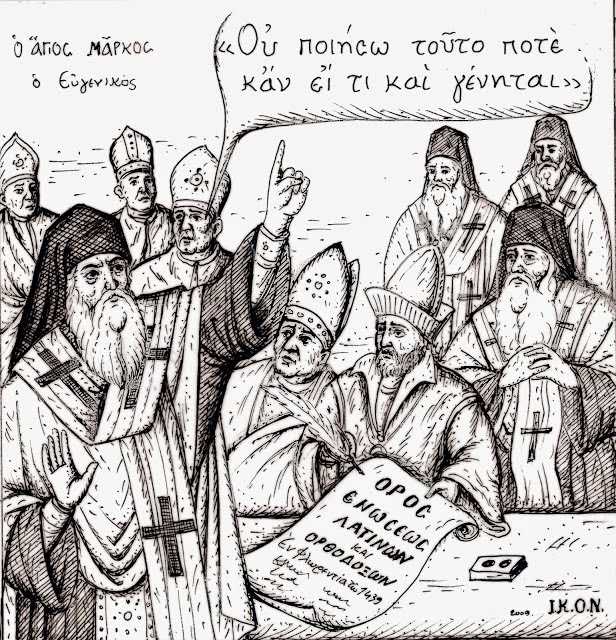 Ὁ ἅγιος Μᾶρκος
ὁ Εὐγενικός
«Οὐ ποιήσω τοῦτο ποτὲ
κἄν εἴ τι καὶ γένηται»
ΟΡΟΣ
ΕΝΩΣΕΩΣ
ΛΑΤΙΝΩΝ
και
ΟΡΘΟΔΟΞΩΝ
ἐν Φλωρεντίᾳ τῷ 1439
2009 Ι.Κ.Ο.Ν.